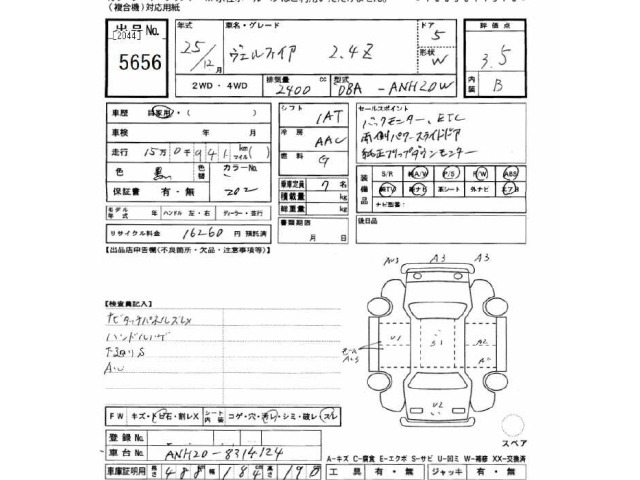 (複合機)対応用紙
出品No.
[2044]
5656
年式
25/12月
車名・グレード
ヴェルファイア 2.4Z
ドア
5
形状
W
評価点
3.5
内装
B
2WD・4WD
排気量
2400 cc
型式
DBA-ANH20W
車歴
自家用・( )
車検 年 月
走行 15万0千941 km マイル( )
色 黒
色替
カラーNo.
202
保証書 有・無
モデル年式 年 ハンドル 左・右 ディーラー・並行
リサイクル料金 16260 円 預託済
シフト
IAT
冷房
AAC
燃料
G
乗車定員 7 名
積載量 kg
総重量 kg
書類期限
月 日
セールスポイント
バックモニター、ETC
両側パワースライドドア
純正フリップダウンモニター
装備品
S/R 純A/W P/S P/W ABS
純TV 純ナビ 革シート 外ナビ エアB
ナビ型番:
後日品
【出品店申告欄(不良箇所・欠品・注意事項等)】
【検査員記入】
ナビタッチパネルズレX
ハンドルハゲ
下廻りS
AW
A3 A3
U1
S1
A2
モール
U2
スペア
FW キズ・トビ石・割レX シート内張 コゲ・穴・汚レ・シミ・破レ・スレ
登録No.
車台No. ANH20-8314124
車庫証明用 長さ 488 幅 184 高さ 190
A-キズ C-腐食 E-エクボ S-サビ U-凹ミ W-補修 XX-交換済
工具 有・無 ジャッキ 有・無